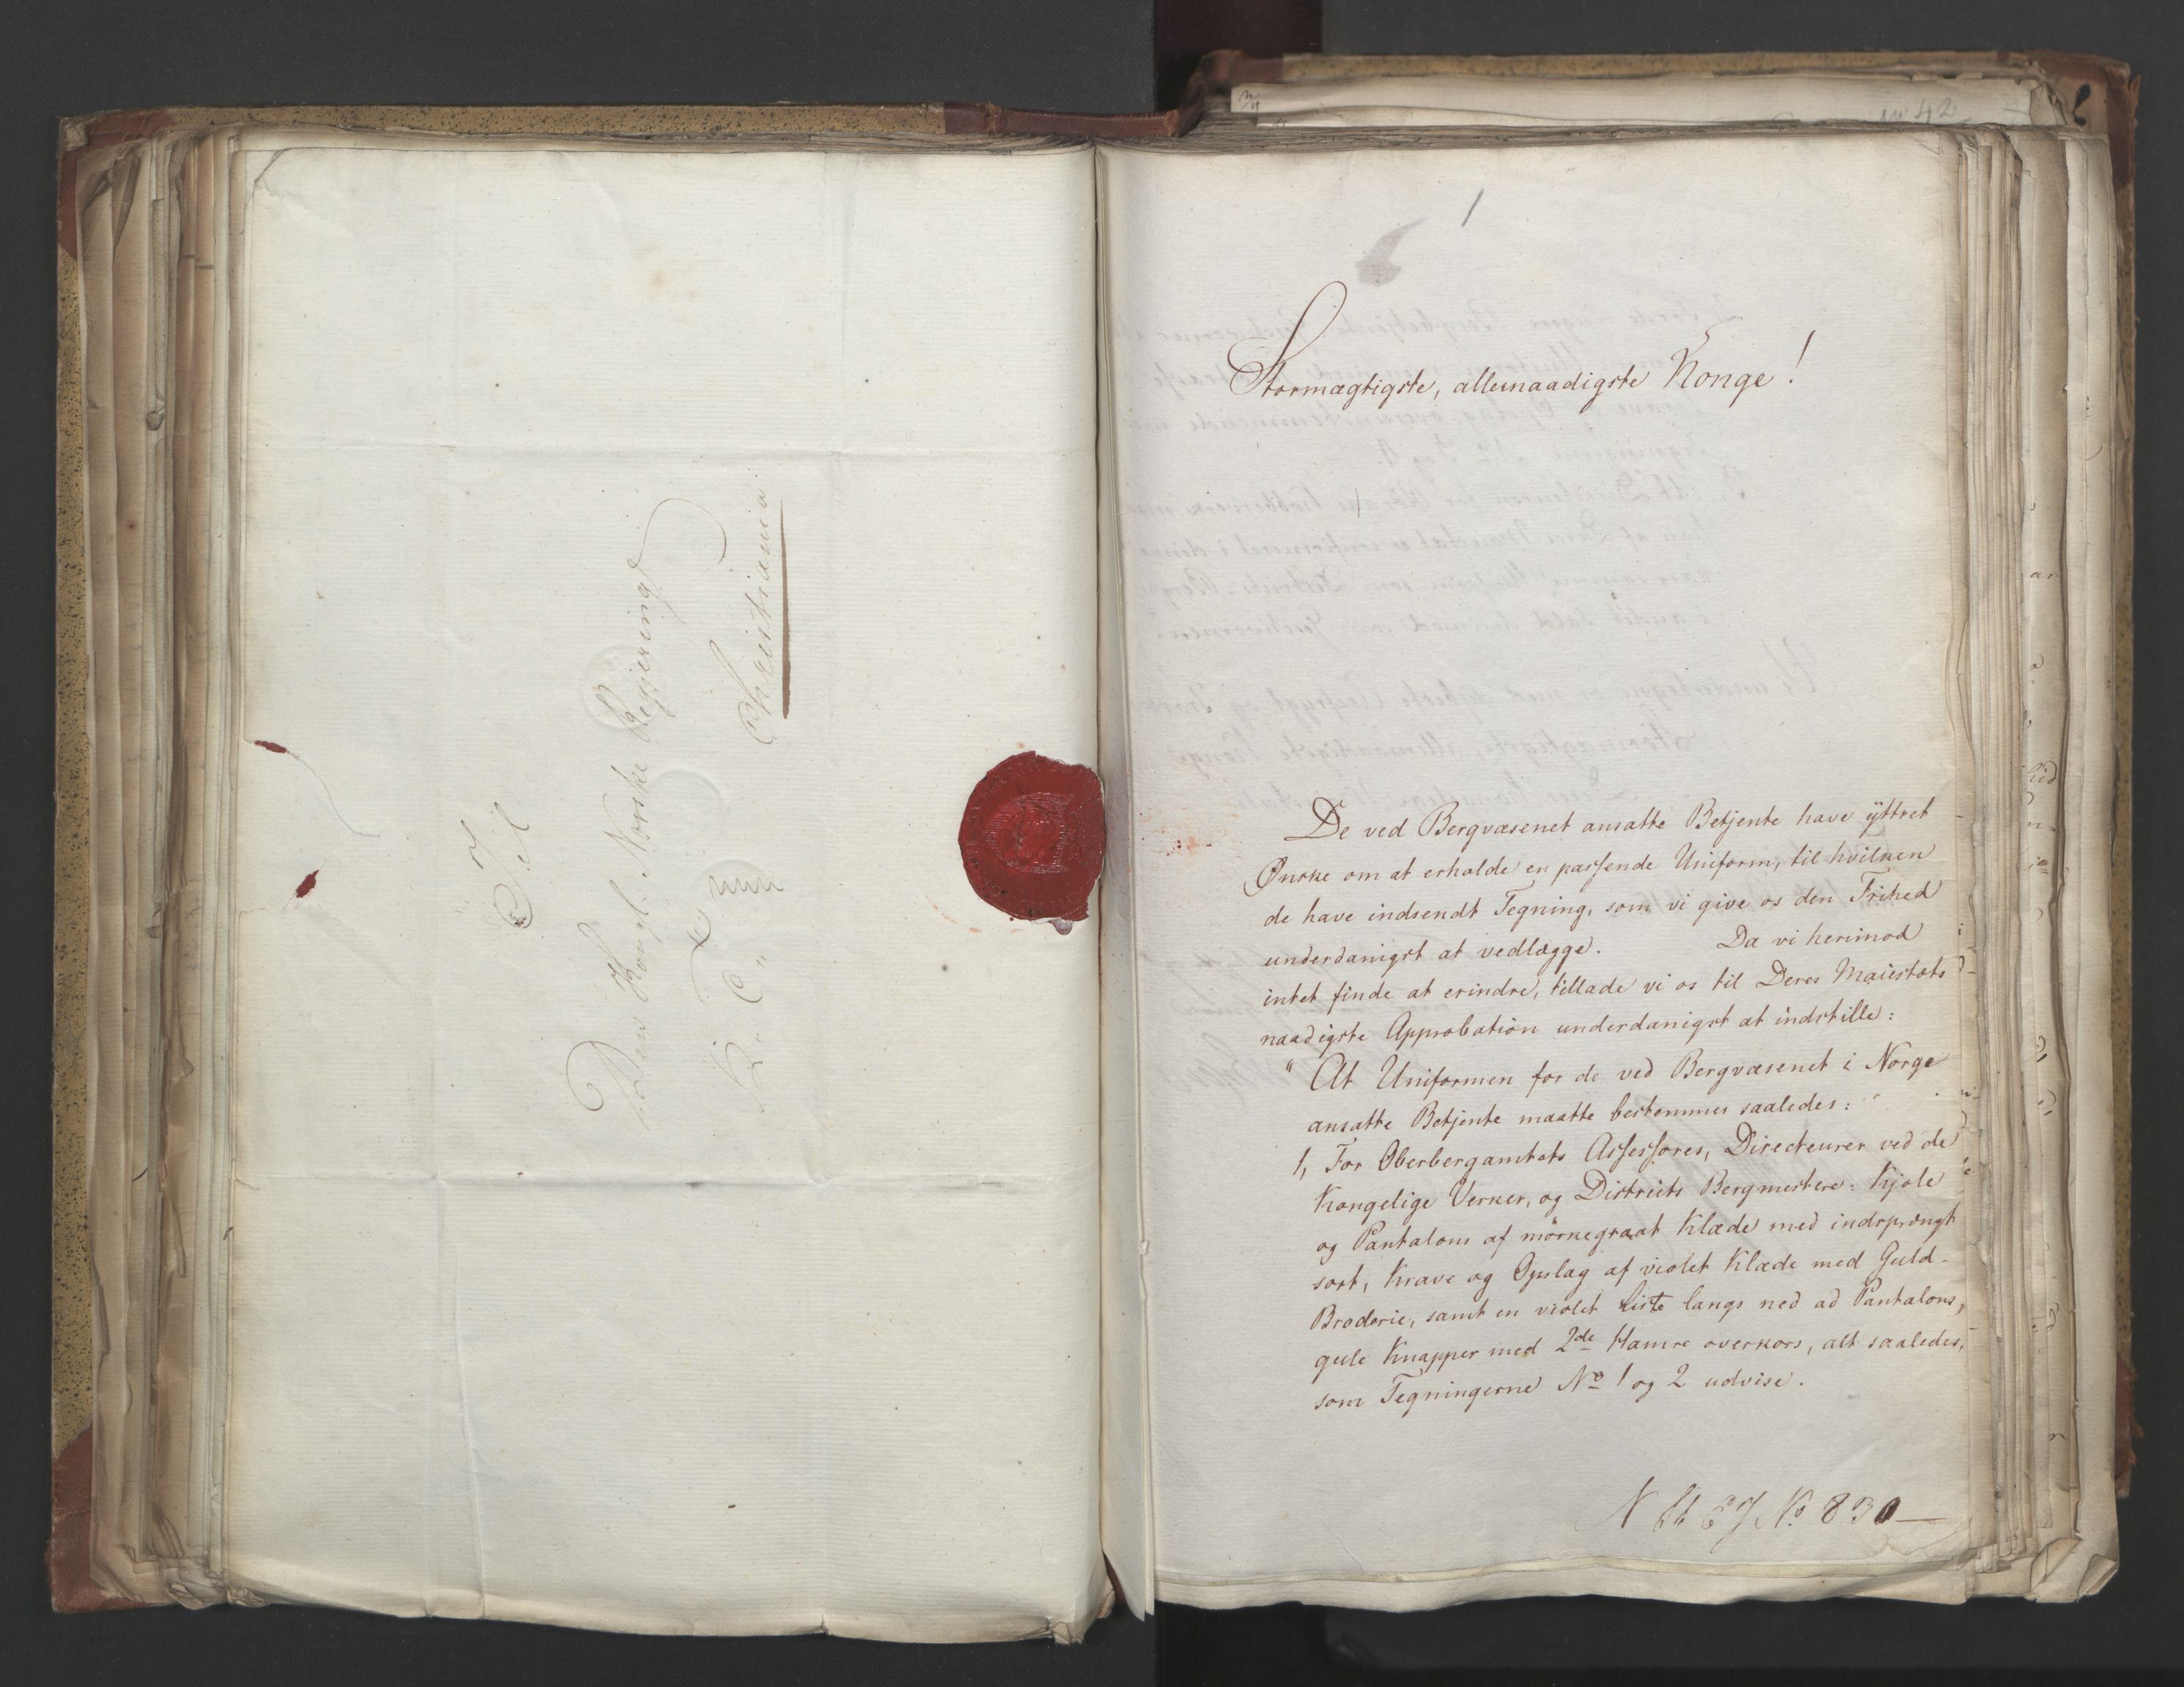 Til
Den Kongl. Norske Regjering
Christiania
1
Stormægtigste, allernaadigste Konge!
De ved Bergvæsenet ansatte Betjente have ÿttret
Ønske om at erholde en passende Uniform, til hvilken
de have indsendt Tegning, som vi give os den Frihed
underdanigst at vedlægge. Da vi herimod
intet finde at erindre, tillade vi os til Deres Maiestæts
naadigste Approbation underdanigst at indstille:
" At Uniformen for de ved Bergvæsenet i Norge
ansatte Betjente maatte bestemmes saaledes:
1, For Oberbergamtets Assessores, Directeurer ved de
Kongelige Verker, og Districts Bergmestere: Kjole
og Pantalons af mörkegraat Klæde med indsprængt
sort, Krave og Opslag af violet Klæde med Guld-
Broderie, samt en violet Liste langs ned ad Pantalons,
gule Knapper med 2de Hamre overkors, alt saaledes,
som Tegningerne No 1 og 2 udvise.
No 830
No 42